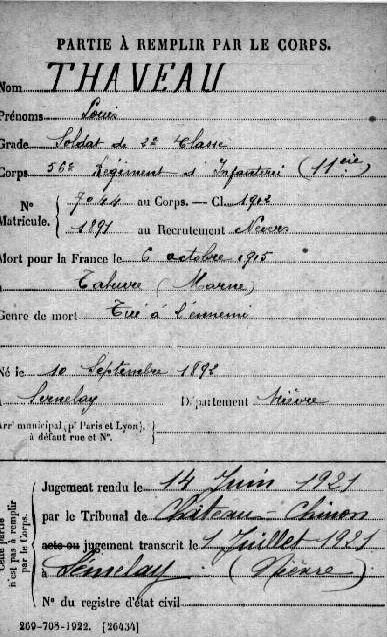 PARTIE À REMPLIR PAR LE CORPS.
Nom THAVEAU
Prénoms Louis
Grade Soldat de 2e Classe
Corps 56e Régiment d'Infanterie (11eie)
No 7044 au Corps. — Cl. 1902
Matricule. 1891 au Recrutement Nevers
Mort pour la France le 6 octobre 1915
à Tahure (Marne)
Genre de mort Tué à l'ennemi
Né le 10 Septembre 1892
à Semelay Département Nièvre
Arrt municipal (pr Paris et Lyon),
à défaut rue et No.
Cette partie n'est pas à remplir par le Corps.
Jugement rendu le 14 Juin 1921
par le Tribunal de Château-Chinon
acte ou jugement transcrit le 1 Juillet 1921
à Sémelay (Nièvre)
No du registre d'état civil
269-708-1922. [26434]